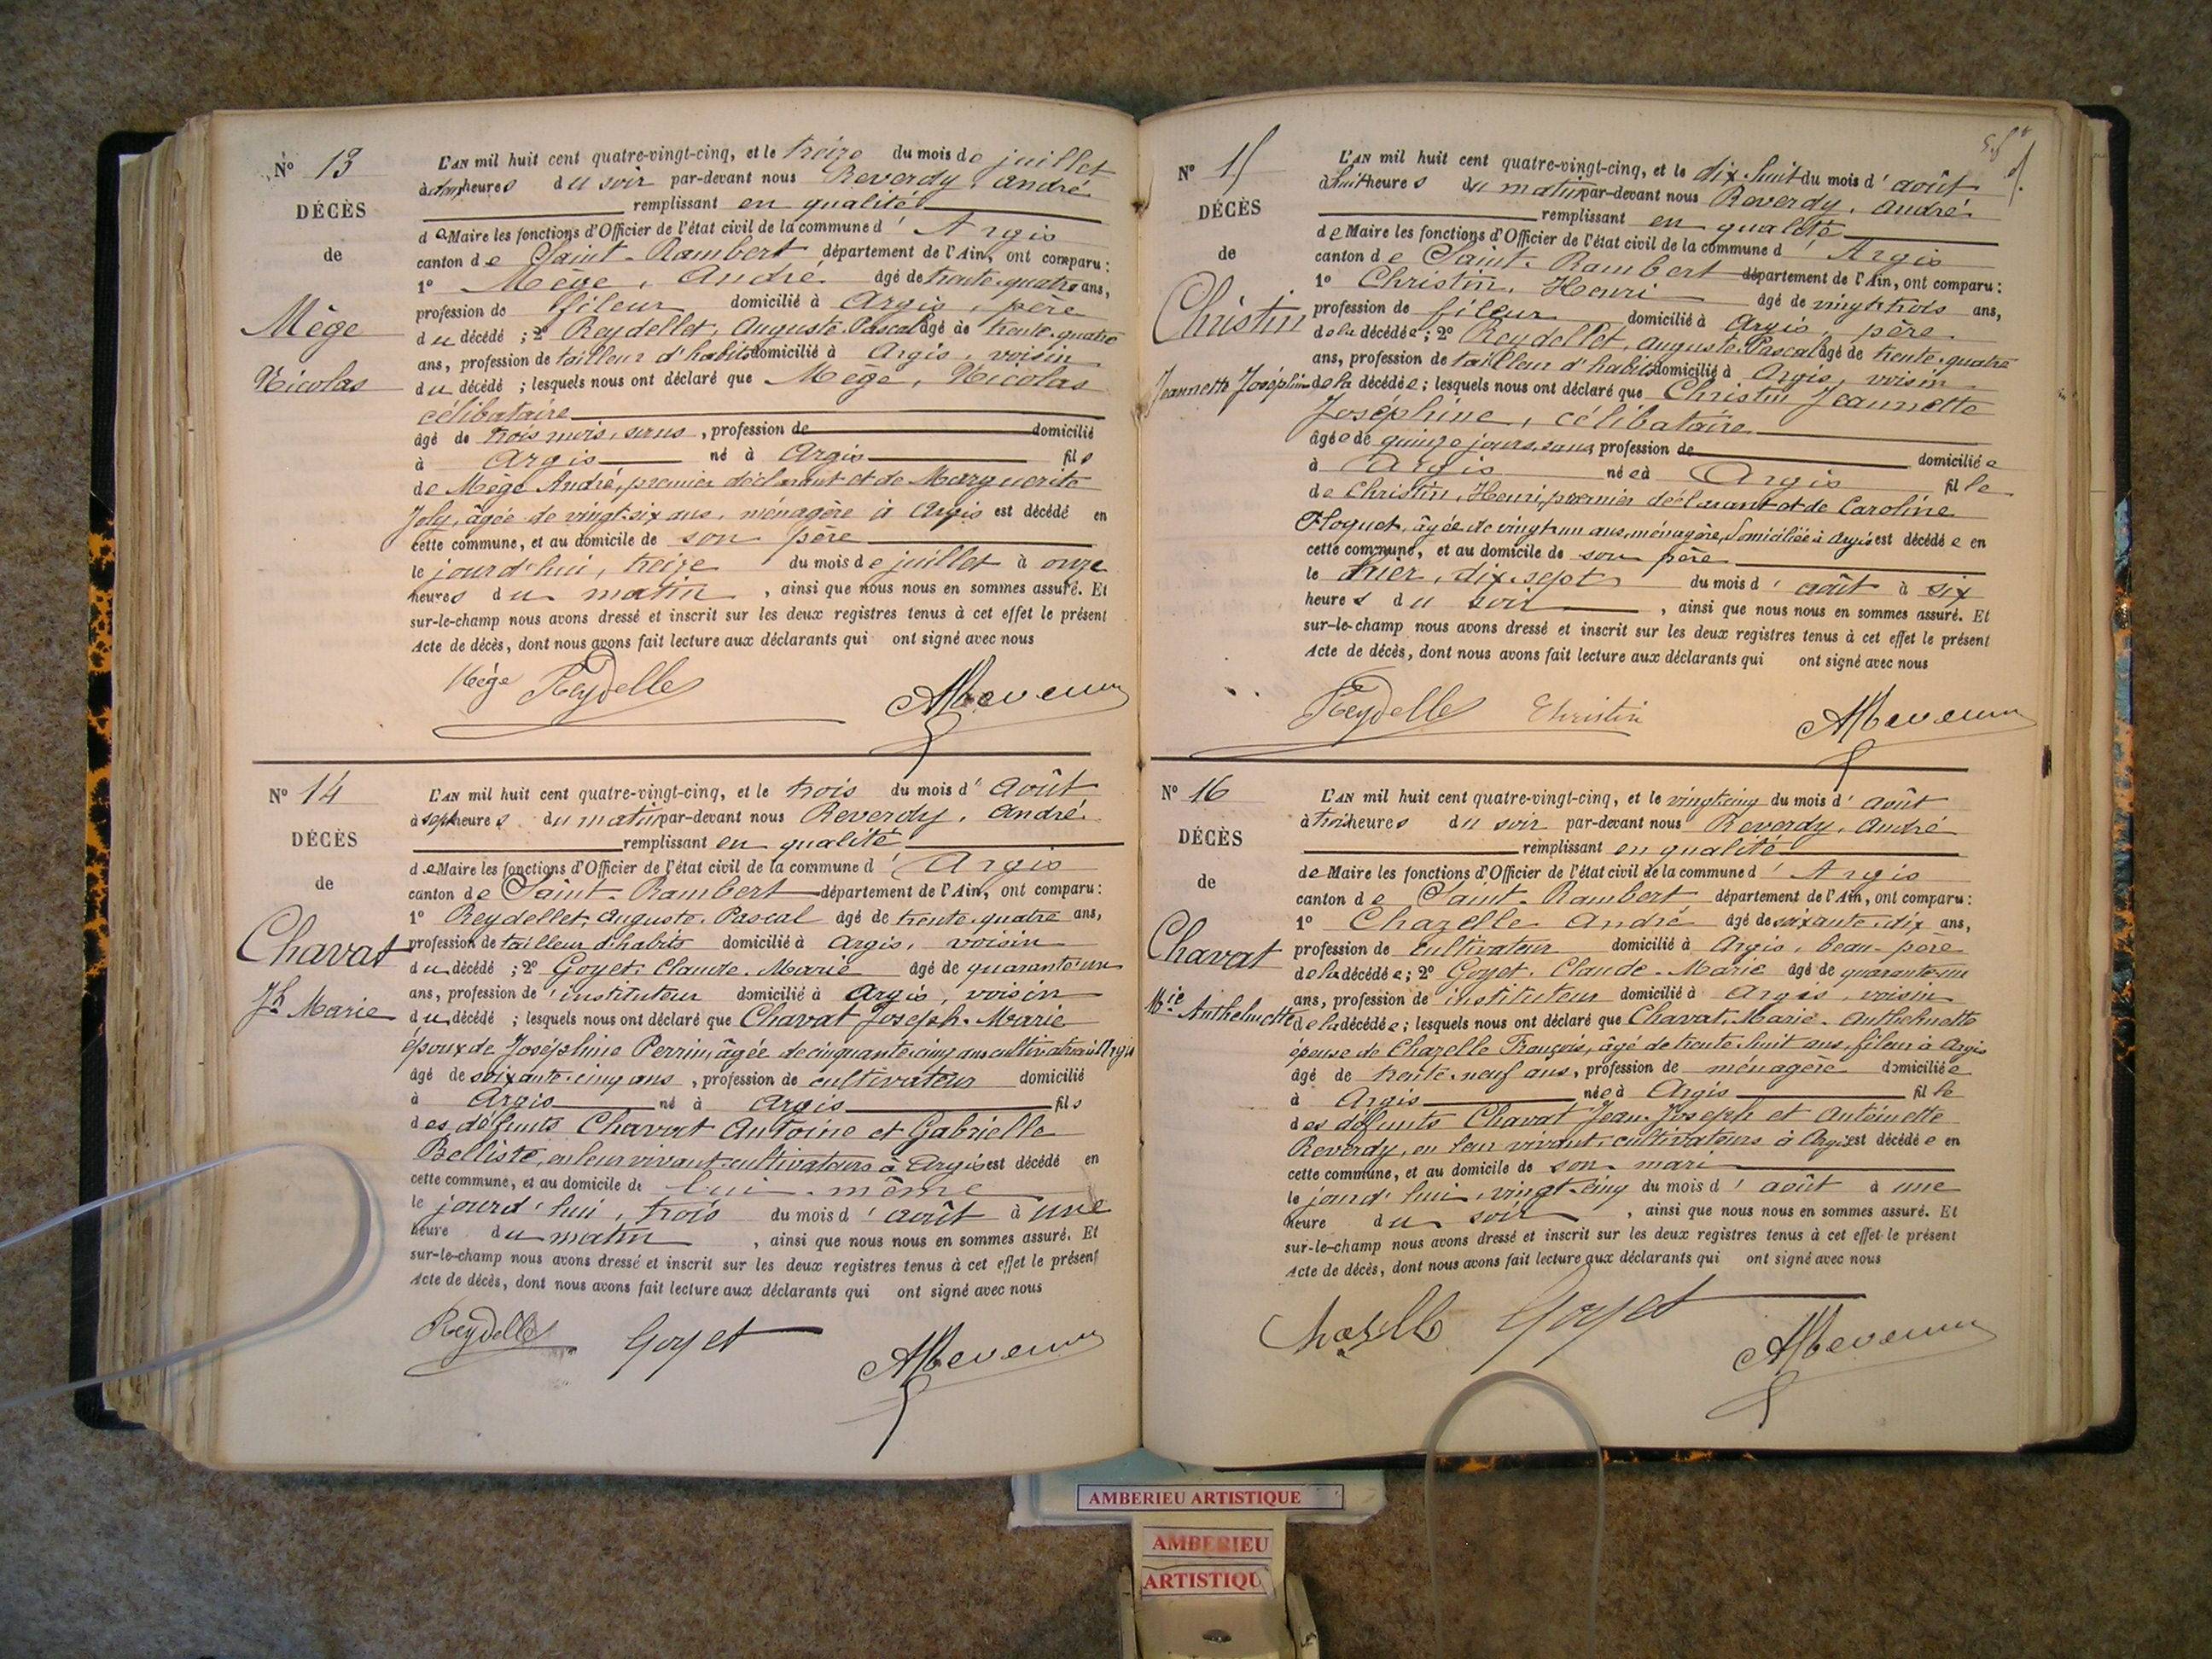 N° 13
DÉCÈS
de
Mège
Nicolas
L'AN mil huit cent quatre-vingt-cinq, et le treize du mois de juillet
à heures du soir par-devant nous Reverdy, André
remplissant en qualité
de Maire les fonctions d'Officier de l'état civil de la commune d' Argis
canton de Saint-Rambert département de l'Ain, ont comparu :
1° Mège, André âgé de trente-quatre ans,
profession de fileur domicilié à Argis, père
du décédé ; 2° Reydellet, Auguste-Pascal âgé de trente-quatre
ans, profession de tailleur d'habits domicilié à Argis, voisin
du décédé ; lesquels nous ont déclaré que Mège, Nicolas
célibataire
âgé de trois mois, sans , profession de domicilié
à Argis né à Argis fils
de Mège André, premier déclarant et de Marguerite
Joly, âgée de vingt-six ans, ménagère à Argis est décédé en
cette commune, et au domicile de son père
le jourd'hui, treize du mois de juillet à onze
heures du matin , ainsi que nous nous en sommes assuré. Et
sur-le-champ nous avons dressé et inscrit sur les deux registres tenus à cet effet le présent
Acte de décès, dont nous avons fait lecture aux déclarants qui ont signé avec nous
Mège Reydellet
N° 14
DÉCÈS
de
Chavat
Jh Marie
L'AN mil huit cent quatre-vingt-cinq, et le trois du mois d' Août
à sept heures du matin par-devant nous Reverdy, André
remplissant en qualité
de Maire les fonctions d'Officier de l'état civil de la commune d' Argis
canton de Saint-Rambert département de l'Ain, ont comparu :
1° Reydellet, Auguste-Pascal âgé de trente-quatre ans,
profession de tailleur d'habits domicilié à Argis, voisin
du décédé ; 2° Goyet, Claude-Marie âgé de quarante-un
ans, profession d'instituteur domicilié à Argis, voisin
du décédé ; lesquels nous ont déclaré que Chavat Joseph-Marie
époux de Joséphine Perrin, âgée de cinquante-cinq ans cultivatrice à Argis
âgé de soixante-cinq ans , profession de cultivateur domicilié
à Argis né à Argis fils
des défunts Chavat Antoine et Gabrielle
Belliste, en leur vivant cultivateurs à Argis est décédé en
cette commune, et au domicile de lui-même
le jourd'hui, trois du mois d' août à une
heure du matin , ainsi que nous nous en sommes assuré. Et
sur-le-champ nous avons dressé et inscrit sur les deux registres tenus à cet effet le présent
Acte de décès, dont nous avons fait lecture aux déclarants qui ont signé avec nous
Reydellet Goyet
N° 15
DÉCÈS
de
Christin
Jeannette Joséphine
L'AN mil huit cent quatre-vingt-cinq, et le dix-huit du mois d' août
à huit heures du matin par-devant nous Reverdy, André
remplissant en qualité
de Maire les fonctions d'Officier de l'état civil de la commune d' Argis
canton de Saint-Rambert département de l'Ain, ont comparu :
1° Christin, Henri âgé de vingt-trois ans,
profession de fileur domicilié à Argis, père
de la décédée ; 2° Reydellet, Auguste-Pascal âgé de trente-quatre
ans, profession de tailleur d'habits domicilié à Argis, voisin
de la décédée ; lesquels nous ont déclaré que Christin Jeannette
Joséphine, célibataire
âgée de quinze jours, sans profession de domiciliée
à Argis née à Argis fille
de Christin, Henri, premier déclarant et de Caroline
Floquet, âgée de vingt-un ans, ménagère, domiciliée à Argis est décédée en
cette commune, et au domicile de son père
le hier, dix-sept du mois d' août à six
heures du soir , ainsi que nous nous en sommes assuré. Et
sur-le-champ nous avons dressé et inscrit sur les deux registres tenus à cet effet le présent
Acte de décès, dont nous avons fait lecture aux déclarants qui ont signé avec nous
Reydellet Christin
N° 16
DÉCÈS
de
Chavat
Mie Anthelmette
L'AN mil huit cent quatre-vingt-cinq, et le vingt-cinq du mois d' août
à trois heures du soir par-devant nous Reverdy, André
remplissant en qualité
de Maire les fonctions d'Officier de l'état civil de la commune d' Argis
canton de Saint-Rambert département de l'Ain, ont comparu :
1° Chazelle André âgé de soixante-dix ans,
profession de cultivateur domicilié à Argis, beau-père
de la décédée ; 2° Goyet, Claude-Marie âgé de quarante-un
ans, profession d'instituteur domicilié à Argis, voisin
de la décédée ; lesquels nous ont déclaré que Chavat, Marie-Anthelmette
épouse de Chazelle François, âgé de trente-huit ans, fileur à Argis
âgé de trente-neuf ans, profession de ménagère domiciliée
à Argis née à Argis fille
des défunts Chavat Jean-Joseph et Antoinette
Reverdy, en leur vivant, cultivateurs à Argis est décédée en
cette commune, et au domicile de son mari
le jourd'hui, vingt-cinq du mois d' août à une
heure du soir , ainsi que nous nous en sommes assuré. Et
sur-le-champ nous avons dressé et inscrit sur les deux registres tenus à cet effet le présent
Acte de décès, dont nous avons fait lecture aux déclarants qui ont signé avec nous
Chazelle Goyet
AMBERIEU ARTISTIQUE
AMBERIEU
ARTISTIQU